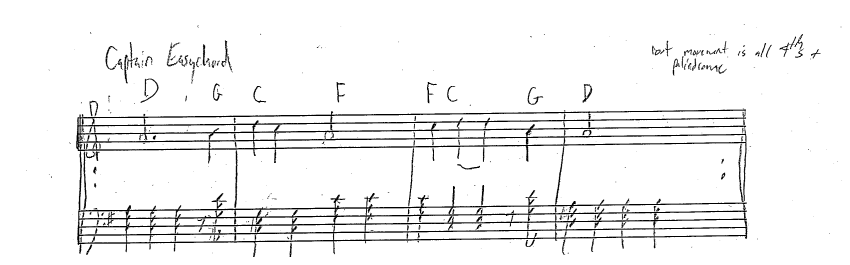 Captain Easychord
root movement is all 4ths +
D G C F F C G D